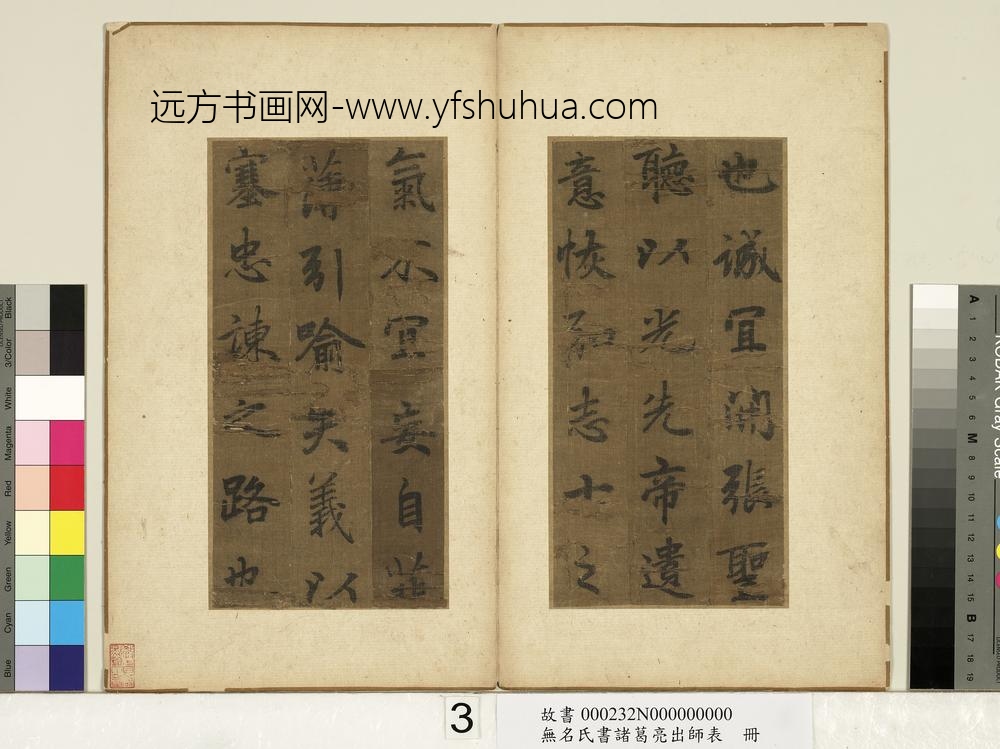 远方书画网-www.yfshuhua.com
也誠宜開張聖
聽以光先帝遺
意恢弘志士之
氣不宜妄自菲
薄引喻失義以
塞忠諫之路也
3
故書 000232N000000000
無名氏書諸葛亮出師表 冊
Black
3/Color
White
Magenta
Red
Yellow
Green
Cyan
Blue
KODAK Gray Scale
A 1 2 3 4 5 6 M 8 9 10 11 12 13 14 15 B 17 18 19